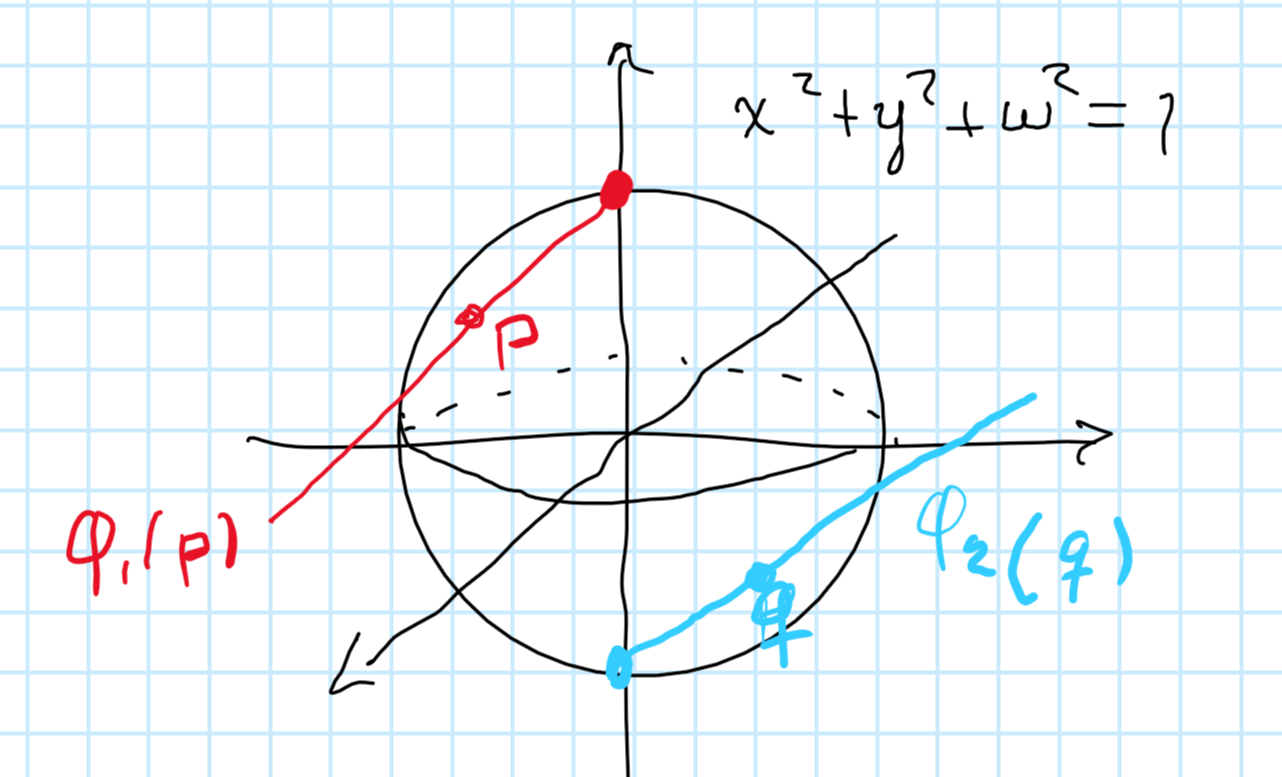 x²+y²+w²=1
p
φ₁(p)
φ₂(q)
q